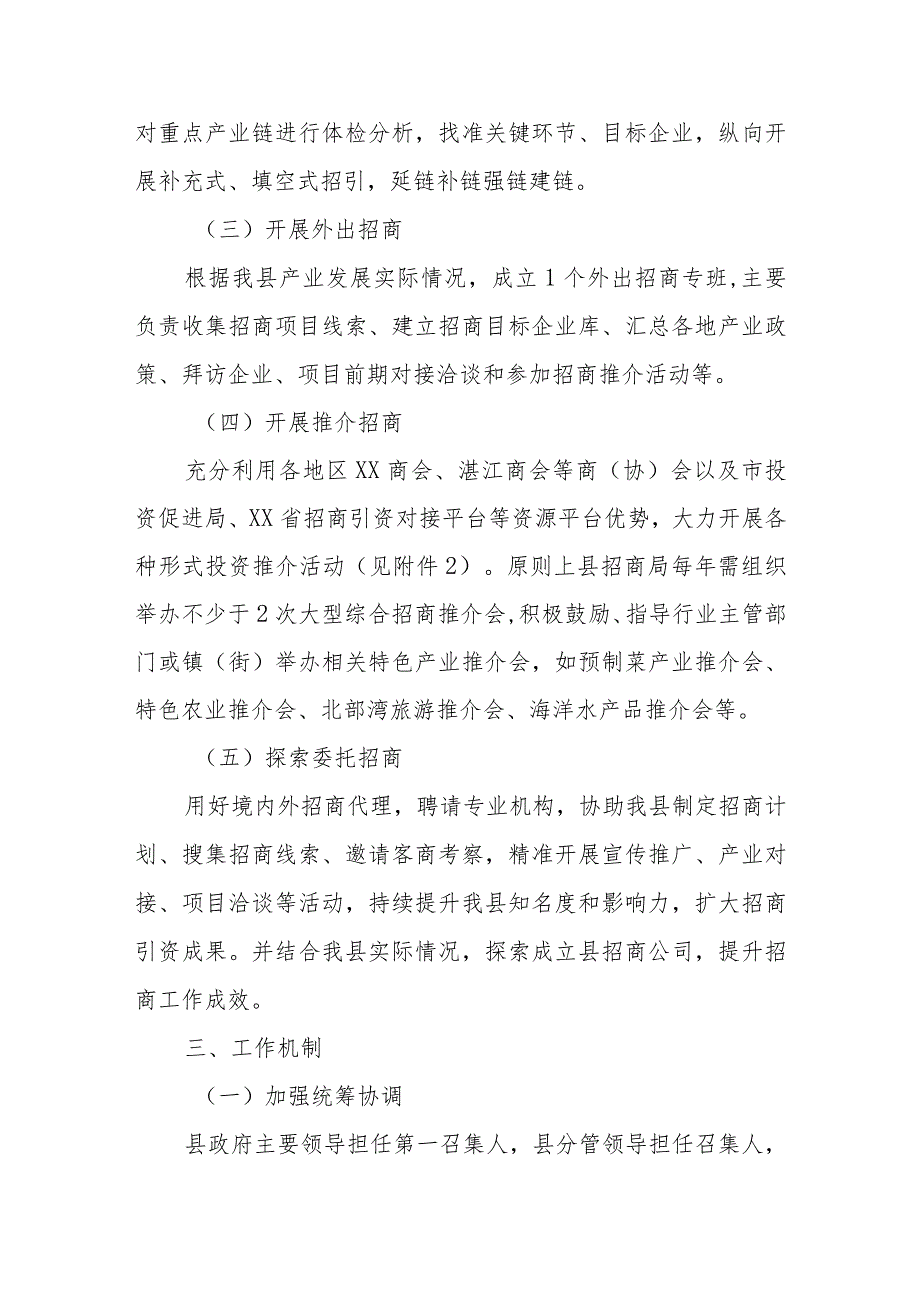 对重点产业链进行体检分析，找准关键环节、目标企业，纵向开
展补充式、填空式招引，延链补链强链建链。
（三）开展外出招商
根据我县产业发展实际情况，成立1个外出招商专班,主要
负责收集招商项目线索、建立招商目标企业库、汇总各地产业政
策、拜访企业、项目前期对接洽谈和参加招商推介活动等。
（四）开展推介招商
充分利用各地区XX商会、湛江商会等商（协）会以及市投
资促进局、XX省招商引资对接平台等资源平台优势，大力开展各
种形式投资推介活动（见附件2）。原则上县招商局每年需组织
举办不少于2次大型综合招商推介会,积极鼓励、指导行业主管部
门或镇（街）举办相关特色产业推介会，如预制菜产业推介会、
特色农业推介会、北部湾旅游推介会、海洋水产品推介会等。
（五）探索委托招商
用好境内外招商代理，聘请专业机构，协助我县制定招商计
划、搜集招商线索、邀请客商考察，精准开展宣传推广、产业对
接、项目洽谈等活动，持续提升我县知名度和影响力，扩大招商
引资成果。并结合我县实际情况，探索成立县招商公司，提升招
商工作成效。
三、工作机制
（一）加强统筹协调
县政府主要领导担任第一召集人，县分管领导担任召集人，